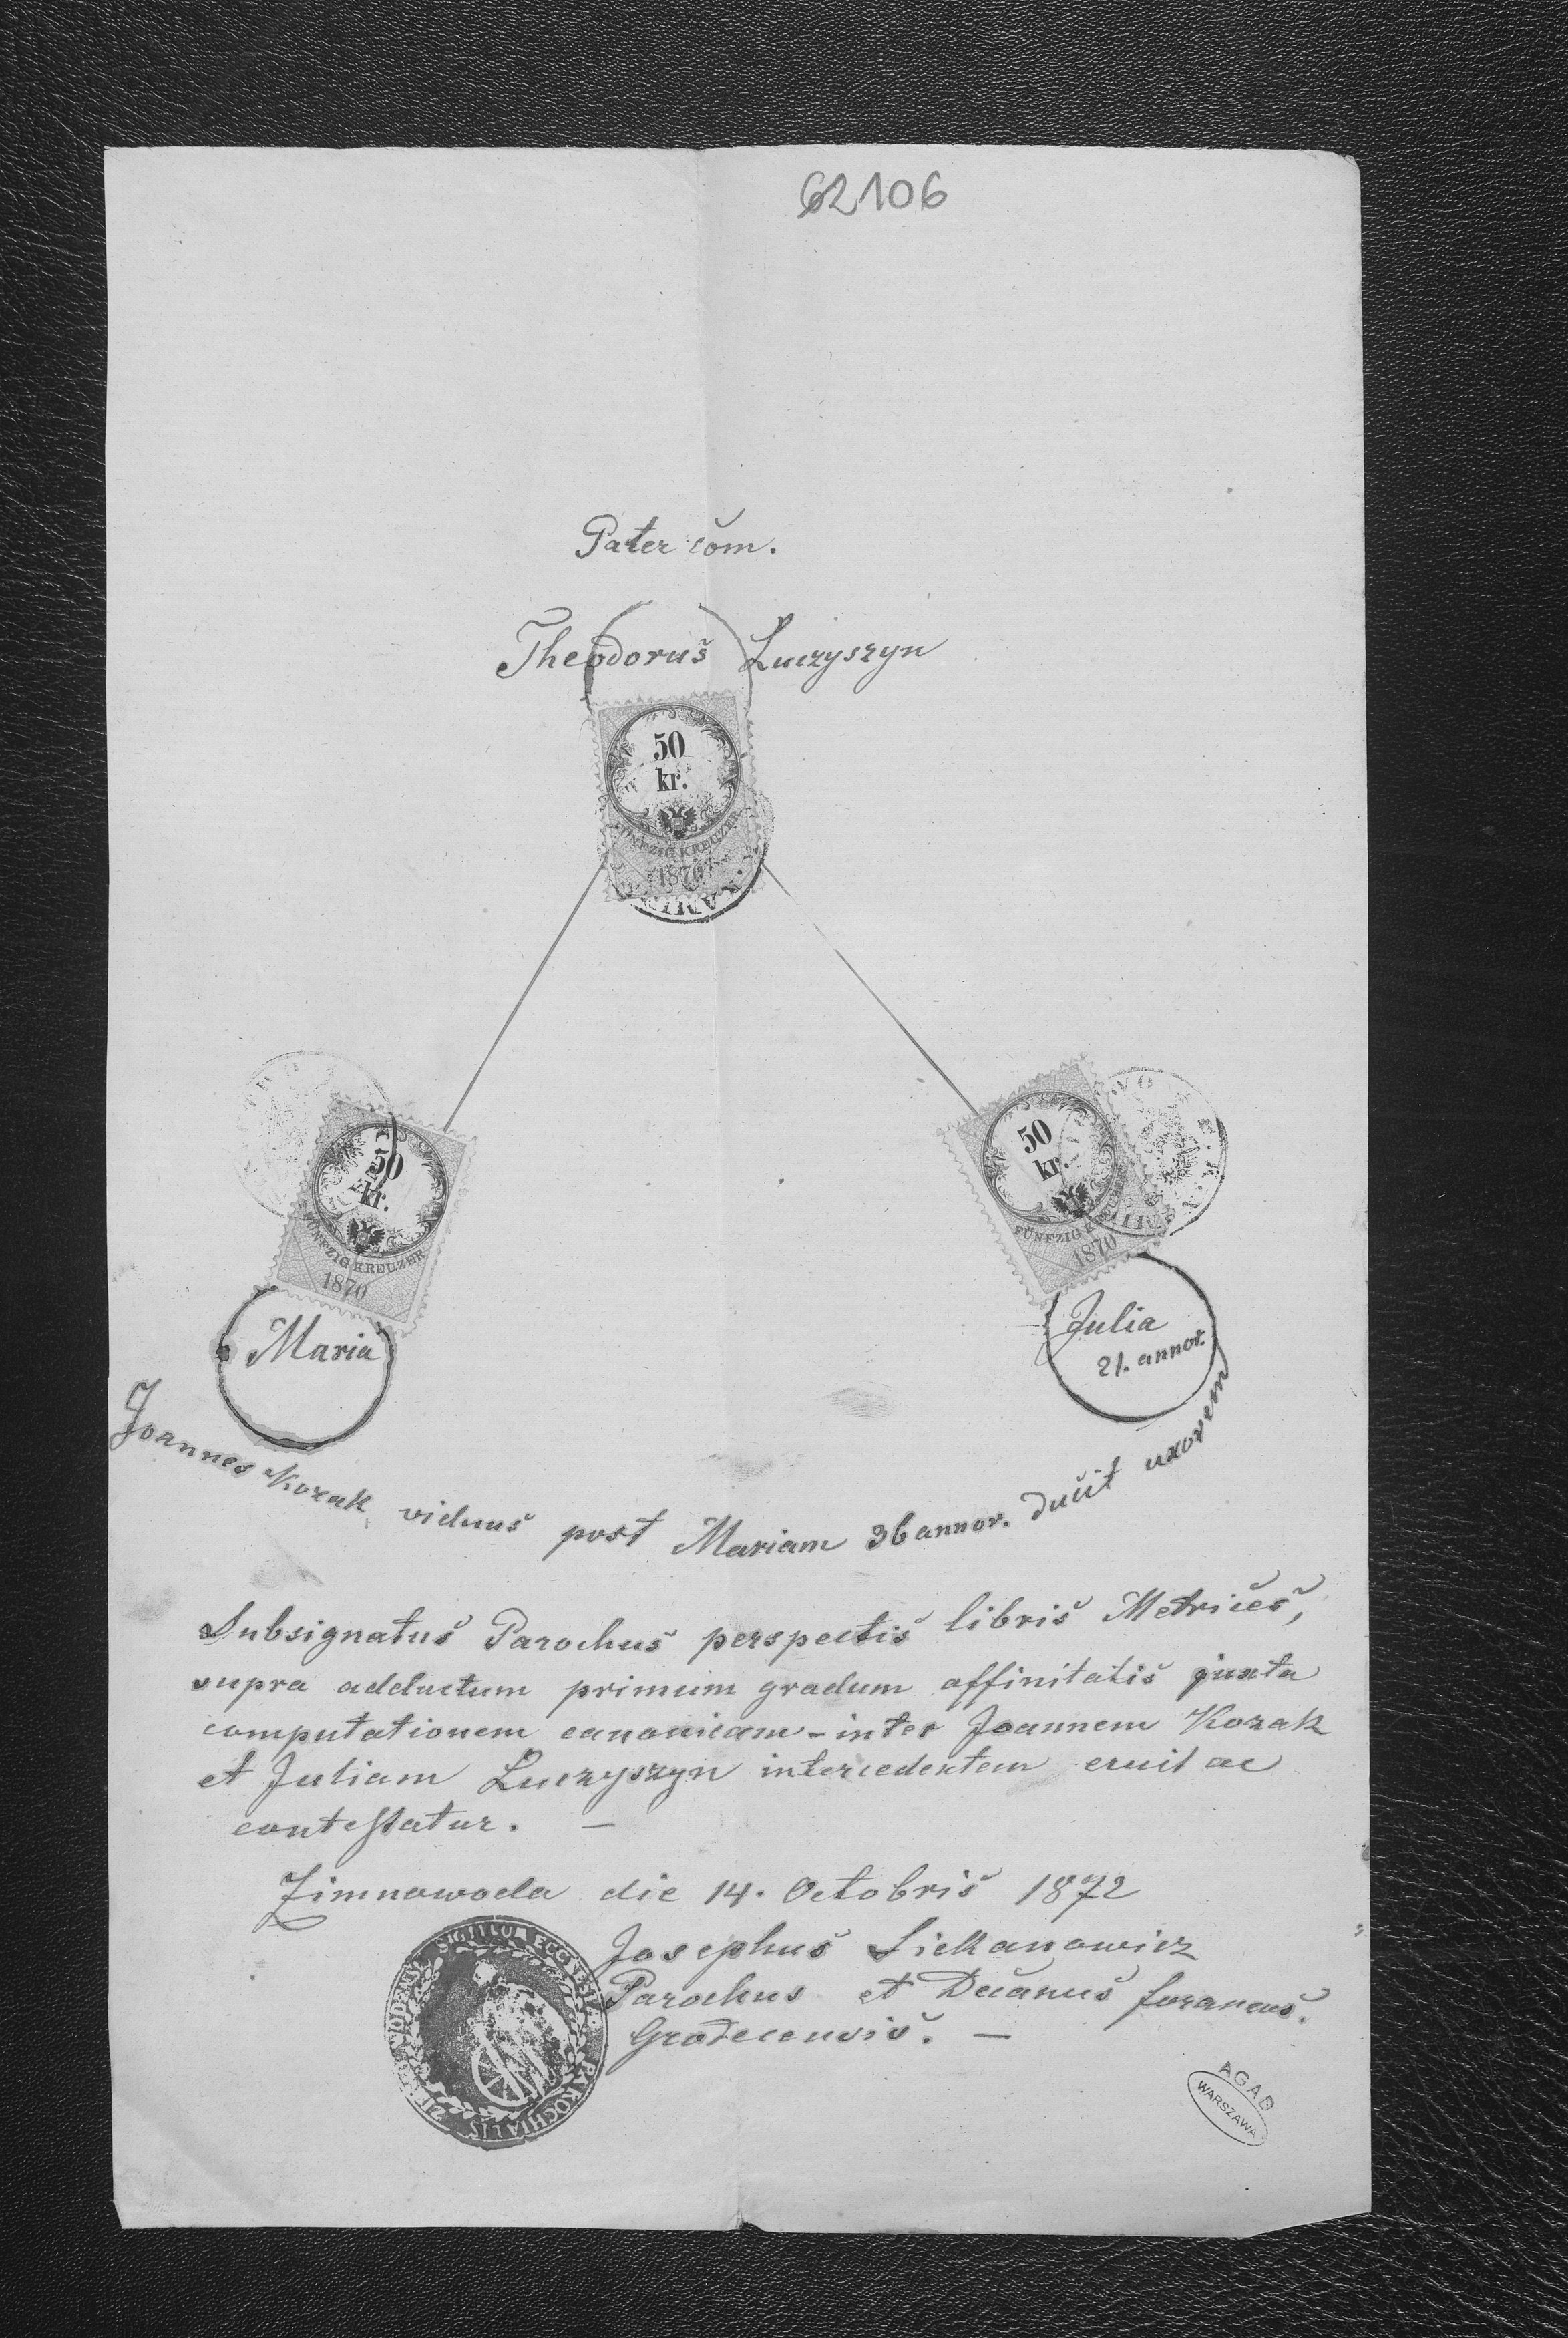 62106
Pater com̄.
Theodorus Łuczyszyn
50
kr.
FÜNFZIG KREUZER
1870
50
kr.
FÜNFZIG KREUZER
1870
50
kr.
FÜNFZIG KREUZER
1870
Maria
Julia
21. annor.
Joannes Kozak viduus post Mariam 36 annor. ducit uxorem
Subsignatus Parochus perspectis libris Metrices,
supra adductum primum gradum affinitatis juxta
computationem canonicam - inter Joannem Kozak
et Juliam Łuczyszyn intercedentem eruit ac
contestatur. —
Zimnawoda die 14. Octobris 1872
Josephus Siekanowicz
Parochus et Decanus foraneus.
Grodecensis. —
SIGILLUM ECCLESIAE PAROCHIALIS
AGAD
WARSZAWA